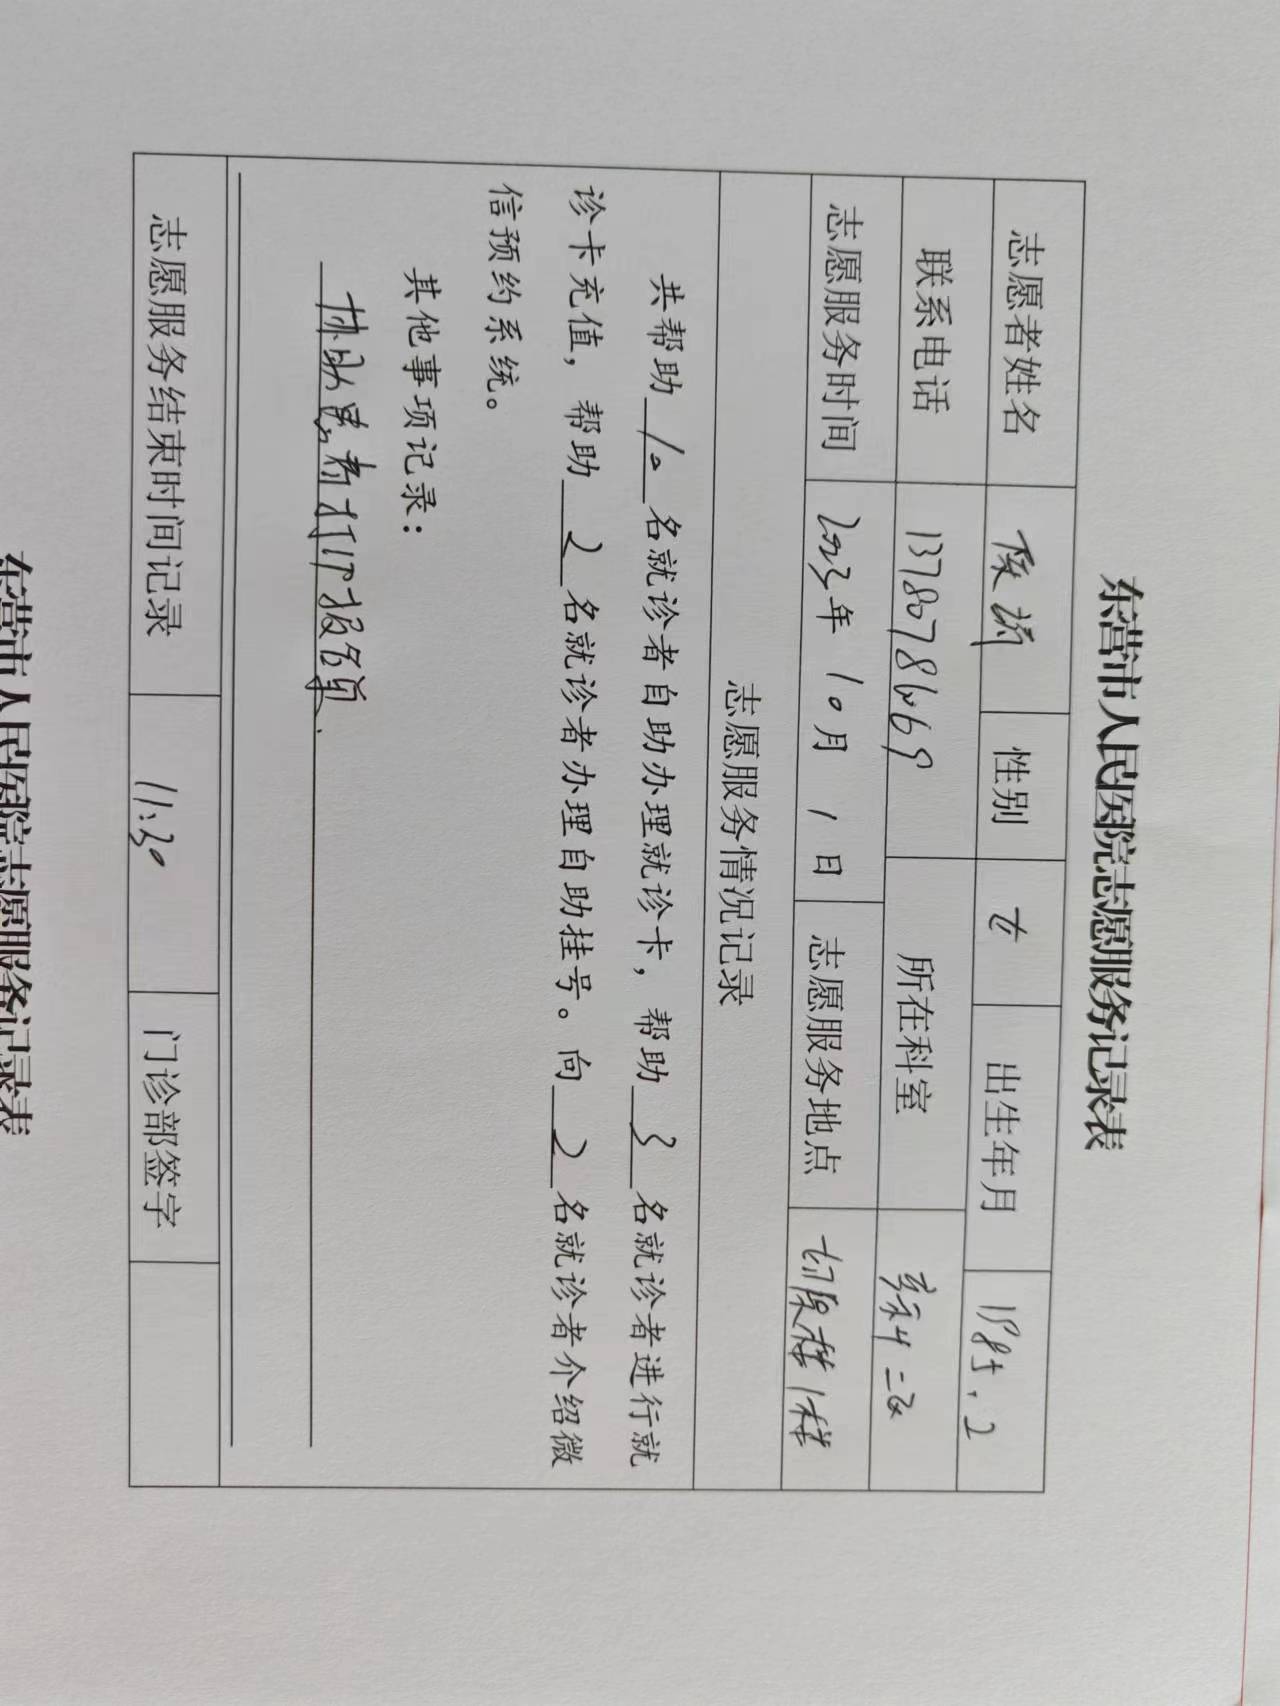 东营市人民医院志愿服务记录表
志愿者姓名 性别 女 出生年月 1985.2
联系电话 所在科室
志愿服务时间 2023年 10月 1日 志愿服务地点
志愿服务情况记录
共帮助 10 名就诊者自助办理就诊卡，帮助 3 名就诊者进行就
诊卡充值，帮助 2 名就诊者办理自助挂号。向 2 名就诊者介绍微
信预约系统。
其他事项记录：
协助患者打印报告单.
志愿服务结束时间记录 11:30 门诊部签字
东营市人民医院志愿服务记录表